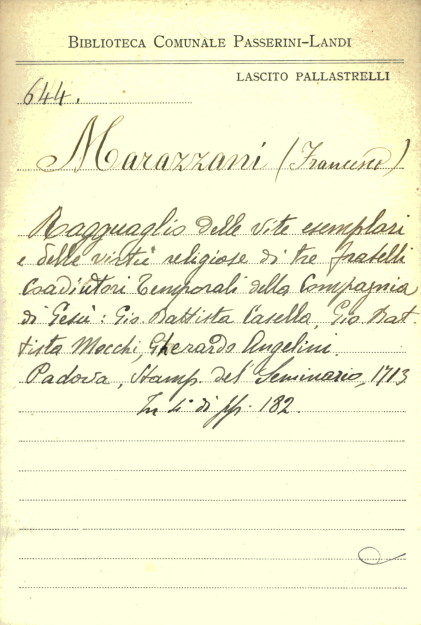 BIBLIOTECA COMUNALE PASSERINI-LANDI
LASCITO PALLASTRELLI
644.
Marazzani (Francesco)
Ragguaglio delle vite esemplari
e delle virtù religiose di tre fratelli
Coadiutori Temporali della Compagnia
di Gesù: Gio. Battista Casella, Gio. Bat-
tista Mocchi, Gherardo Angelini.
Padova, Stamp. del Seminario, 1713
In 4° di pp. 182.